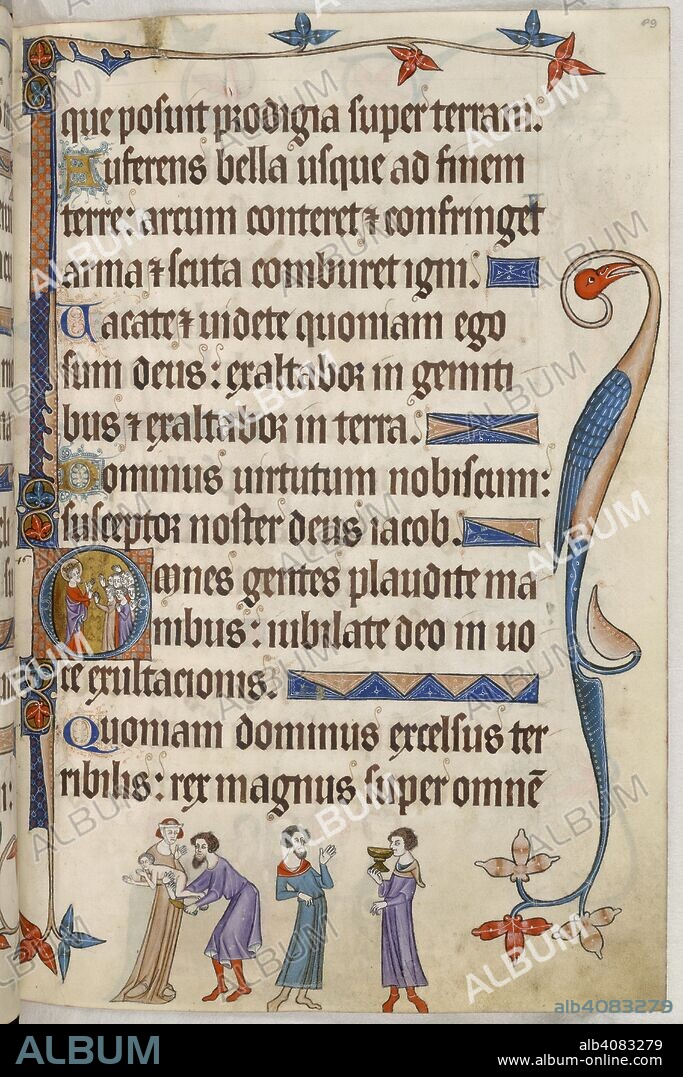 89
que posuit prodigia super terram.
Auferens bella usque ad finem
terre: arcum conteret ⁊ confringet
arma ⁊ scuta comburet igni.
Uacate ⁊ uidete quoniam ego
sum deus: exaltabor in genti
bus ⁊ exaltabor in terra.
Dominus uirtutum nobiscum:
susceptor noster deus iacob.
Omnes gentes plaudite ma
nibus: iubilate deo in uo
ce exultacionis.
Quoniam dominus excelsus ter
ribilis: rex magnus super omnē
alb4083279
ALBUM
alb4083279
www.album-online.com